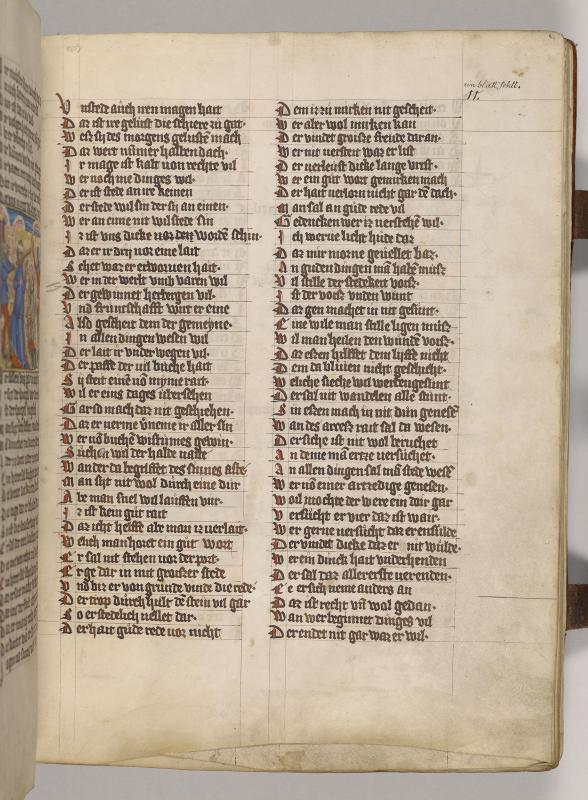 ein blatt fehlt.
11.
Vnstede auch iren magen hait
Dar ist ire gelust die schiere zu gat
Wes sy des morgens gelustē mach
Dar wert nūmer halben dach.
Ir mage ist kalt von rechte vil
Wer noch me dinges wil.
Der ist stede an ire keinen
Der stede wil sin der sij an einen.
Wer an eime nit wil stede sin
Iz ist vns dicke vor den wordē schin.
Dar er ir drij vor eine lait
Sehet war er erworuen hait.
Wer in der werlt vmb varen wil
Der gewinnet herbergen vil.
Vnd fruntschafft wirt er eine
Also gescheit dem der gemeyne.
In allen dingen wesen wil
Der lait ir vnder wegen vil.
Der paffe der vil buche hait
Sij steit einē vō myme rait.
Wil er eins dages übersehen
Gar sō mach daz nit geschiehen.
Daz er verme vneme ir aller sin
Wer vō buchē wistumes gewin.
Suchen wil der halde vaste
Wan der da begrifft des sinnes aste
Man siht nit wol durch eine dür
Abe man snel wil lauffen vur.
Iz ist kein gut rait
Daz icht helffe abe man iz verlait.
Welich man horet ein gut wort
Er sal nit stehen vor der port.
Er ge dar in mit groiszer stede
Vnd biz er von grunde vinde die rede.
Der trop durch hult dē stein vil gar
So er stedelich vellet dar.
Der hait gude rede vor nicht
Dem ir zu mirken nit gescheit.
Wer aber wol mirken kan
Der vindet groisze freude dar an.
Wer nit versteit waz er list
Der verleust dicke lange vrist.
Wer ein gut wort gemirken mach
Der hait verlorn nicht gar dē dach.
Man sal an gude rede vil
Gedencken wer iz verstehē wil.
Ich werne licht hude daz
Daz mir morne geuellet baz.
An guden dingen mā habē muß
Vil stille der stedekeit voiß.
Ist der voiß vnden wunt
Daz gen machet in nit gesunt.
Eine wile man stille ligen muiß
Wil man heilen den wunde voiß.
Daz essen hilffet dem lijffe nicht
Dem da vluuen nicht geschicht.
Weliche sieche wil werden gesunt
Der sal nit wandelen alle stunt.
Sin essen mach in nit dun genesē
Wan des arczes rait sal da wesen.
Der siche ist nit wol beruchet
An deme mā ercze versuchet.
An allen dingen sal mā stede wesē
Wer vō einer artzedige genesen.
Wol mochte der were ein dor gar
Versucht er vier daz ist wair.
Wer gerne versucht daz er enfulde
Der vindet dicke daz er nit wulde.
Wer ein dinck hait vnder henden
Der sal daz allererste verenden.
Ee er sich neme anders an
Daz ist recht vñ wol gedan.
Wan wer beginnet dinges vil
Der endet nit gar waz er wil.